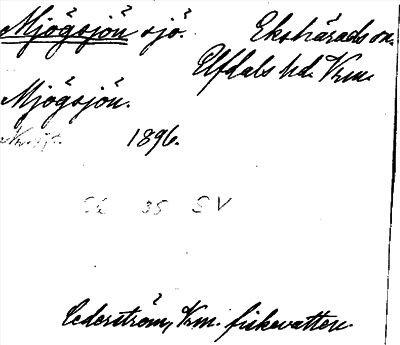 Mjögsjön sjö. Ekshärads sn.
Elfdals hd. Vrm.
Mjögsjön.
1896.
SV
Cederström, Vrm. fiskevatten.